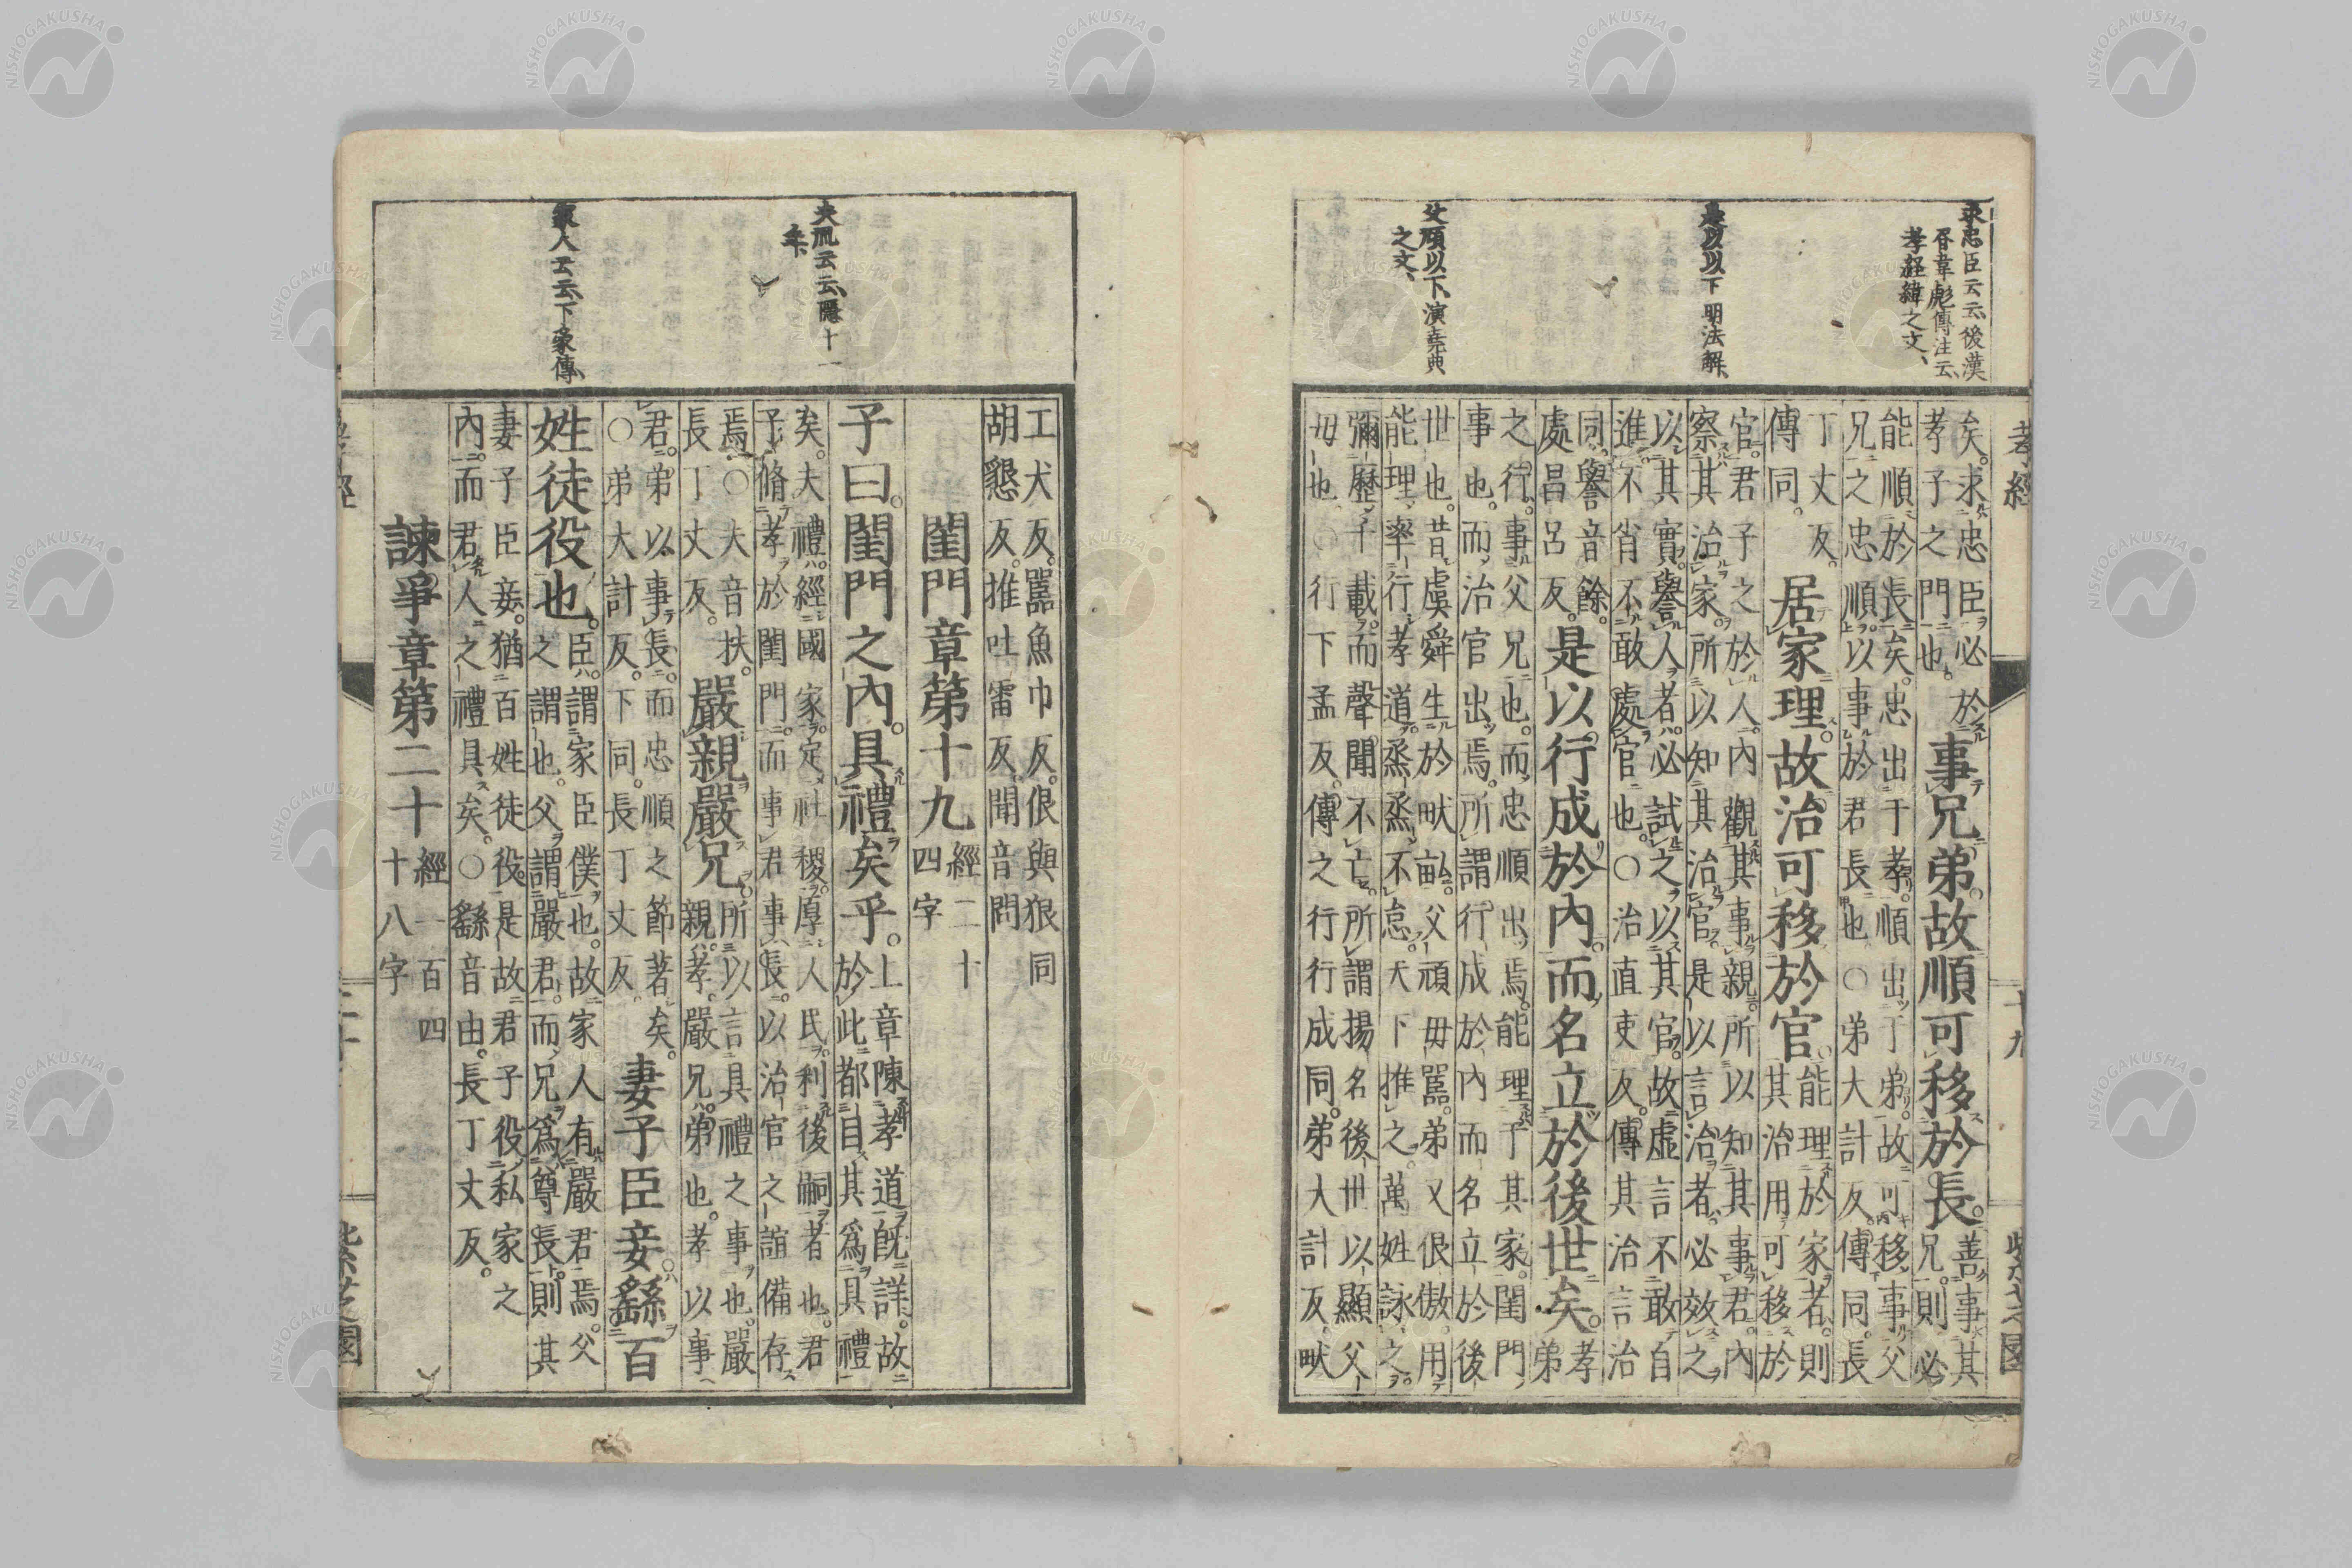 孝經
十九
紫芝園
求忠臣云云、後漢
韋彪傳注云、
孝経緯之文、
是以以下明法解、
父頑以下、演堯典
之文、
矣。求忠臣必於
孝子之門也。
事兄弟。故順可移於長。
善事其
兄。則必
能順於長矣。忠出于孝。順出于弟。故可移事父
兄之忠順。以事於君長也。○弟大計反。傳同。長
丁丈反。
傳同。
居家理。故治可移於官。
能理於家者。則
其治用可移於
官。君子之於人。內觀其事親。所以知其事君。內
察其治家。所以知其治官。是以言治者。必效之
以其實。譽人者。必試之以其官。故虛言不敢自
進。不肖不敢處官也。○治直吏反。傳其治言治
同。譽音餘。
處昌呂反。
是以行成於內。而名立於後世矣。
孝
弟
之行。事父兄也。而忠順出焉。能理于其家。閨門
事也。而治官出焉。所謂行成於內而名立於後
世也。昔虞舜生於畎畝。父頑毋嚚。弟又佷傲。用
能理率行孝道。烝烝不怠。天下推之。萬姓詠之。
彌歷千載。而聲聞不亡。所謂揚名後世。以顯父
毋也。○行下孟反。傳之行行成同。弟大計反。畎
夫禮云云、隱十一
年、
家人云云、下象傳、
工犬反。嚚魚巾反。佷與狠同
胡懇反。推吐雷反。聞音問
閨門章第十九
經二十
四字
子曰。閨門之內。具禮矣乎。
上章陳孝道既詳。故
於此都目其爲具禮
矣。夫禮。經國家。定社稷。厚人民。利後嗣者也。君
子脩孝於閨門。而事君事長。以治官之誼備存
焉。○夫音扶。
長丁丈反。
嚴親嚴兄。
所以言具禮之事也。嚴
親孝。嚴兄弟也。孝以事
君。弟以事長。而忠順之節著矣。
○弟大計反。下同。長丁丈反
妻子臣妾。繇百
姓徒役也。
臣。謂家臣僕也。故家人有嚴君焉。父
之謂也。父謂嚴君。而兄爲尊長。則其
妻子臣妾。猶百姓徒役。是故君子役私家之
內。而君人之禮具矣。○繇音由。長丁丈反。
諫爭章第二十
經一百四
十八字